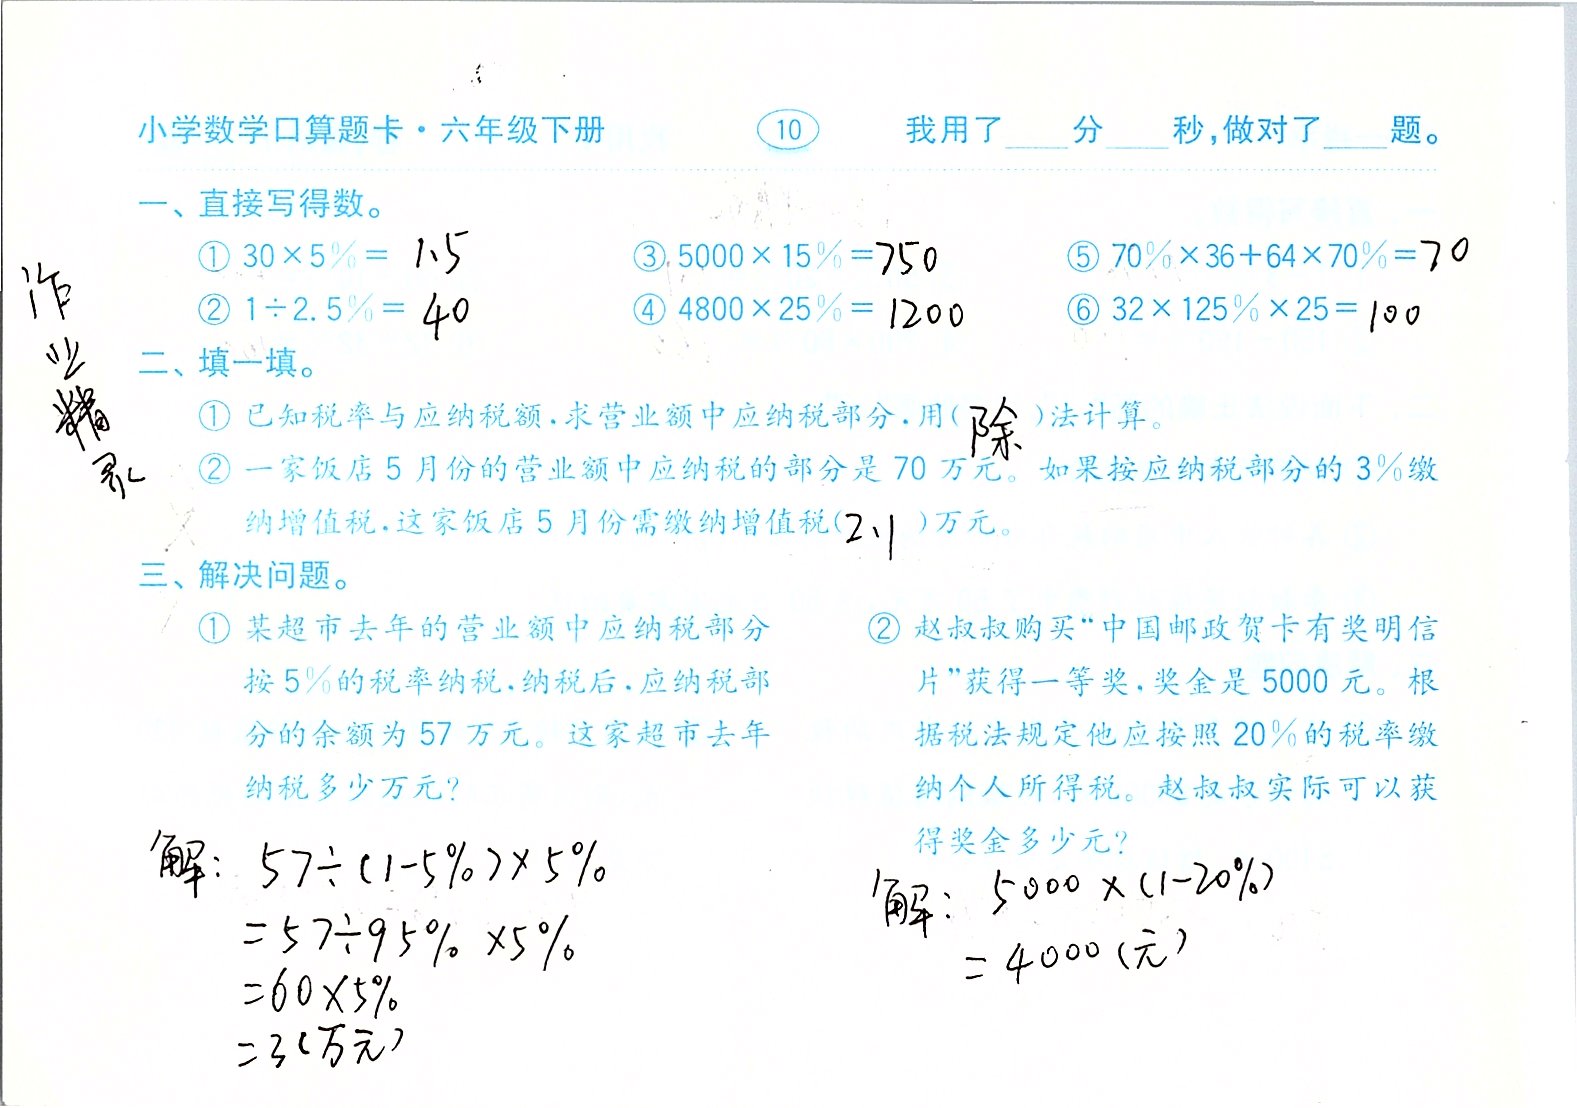 小学数学口算题卡·六年级下册 10 我用了____分____秒,做对了____题。
一、直接写得数。
① 30×5%= 1.5 ③ 5000×15%=750 ⑤ 70%×36+64×70%=70
② 1÷2.5%= 40 ④ 4800×25%= 1200 ⑥ 32×125%×25= 100
作业精灵
二、填一填。
① 已知税率与应纳税额,求营业额中应纳税部分,用(除)法计算。
② 一家饭店5月份的营业额中应纳税的部分是70万元。如果按应纳税部分的3%缴
纳增值税,这家饭店5月份需缴纳增值税(2.1)万元。
三、解决问题。
① 某超市去年的营业额中应纳税部分
按5%的税率纳税,纳税后,应纳税部
分的余额为57万元。这家超市去年
纳税多少万元?
解: 57÷(1-5%)×5%
=57÷95%×5%
=60×5%
=3(万元)
② 赵叔叔购买“中国邮政贺卡有奖明信
片”获得一等奖,奖金是5000元。根
据税法规定他应按照20%的税率缴
纳个人所得税。赵叔叔实际可以获
得奖金多少元?
解: 5000×(1-20%)
=4000(元)